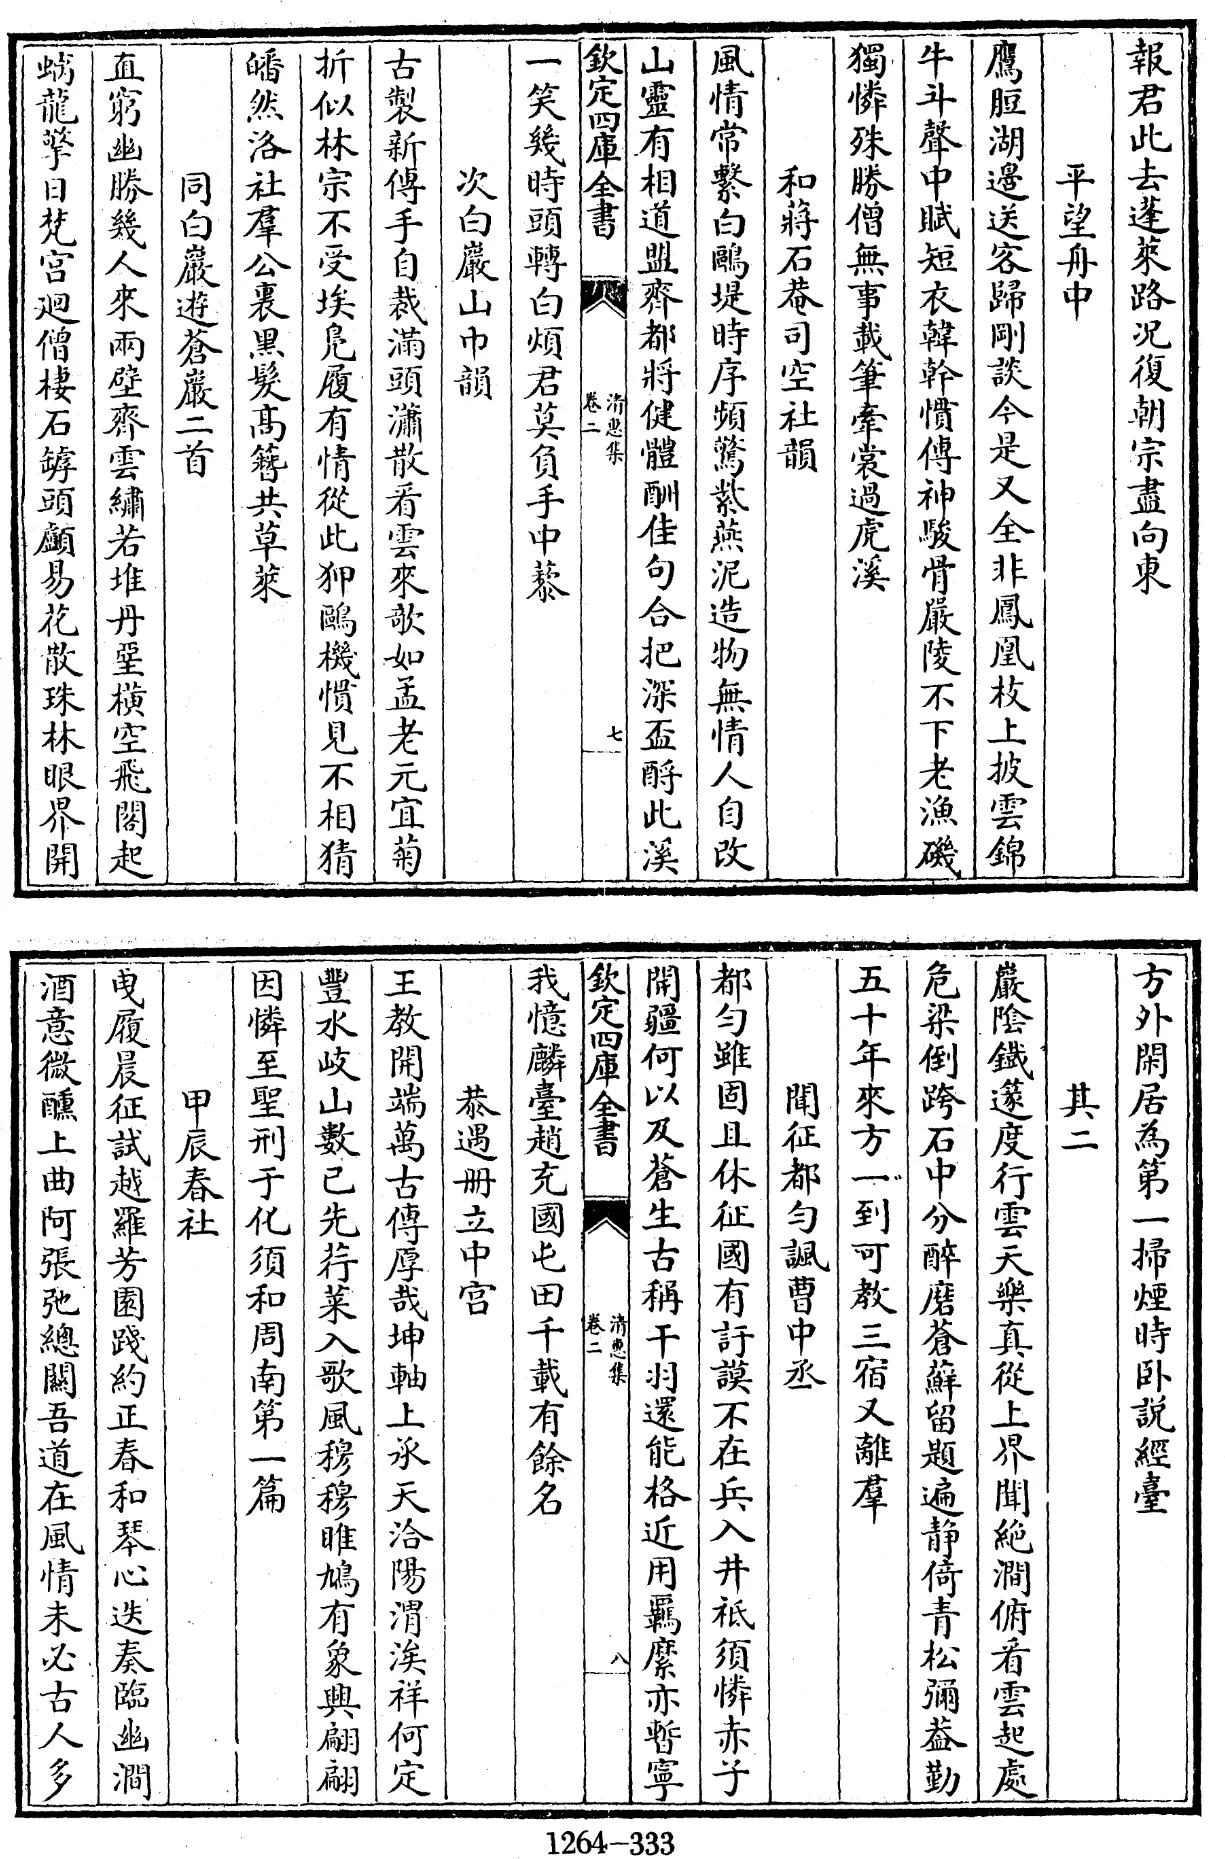 報君此去蓬萊路况復朝宗盡向東
平望舟中
鷹脰湖邊送客歸剛談今是又全非鳳凰枝上披雲錦
牛斗聲中賦短衣韓幹慣傳神駿骨嚴陵不下老漁磯
獨憐殊勝僧無事載筆牽裳過虎溪
和蔣石菴司空社韻
風情常繫白鷗堤時序頻驚紫燕泥造物無情人自改
山靈有相道盟齊都將健體酬佳句合把深盃酹此溪
欽定四庫全書
清惠集
卷二
七
一笑幾時頭轉白煩君莫負手中藜
次白巖山巾韻
古製新傳手自裁滿頭瀟散看雲來歌如孟老元宜菊
折似林宗不受埃鳧履有情從此狎鷗機慣見不相猜
皤然洛社羣公裏黒髮髙簪共草萊
同白巖遊蒼巖二首
直窮幽勝幾人來兩壁齊雲繡若堆丹堊橫空飛閣起
螭龍擎日梵宮廻僧棲石罅頭顱易花散珠林眼界開
方外閑居為第一掃煙時卧説經臺
其二
巖陰鐵篴度行雲天樂真從上界聞絶澗俯看雲起處
危梁倒跨石中分醉磨蒼蘚留題遍静倚青松彌益勤
五十年來方一到可教三宿又離羣
聞征都勻諷曹中丞
都勻雖固且休征國有訏謨不在兵入井祗須憐赤子
開疆何以及蒼生古稱干羽還能格近用羈縻亦暫寧
欽定四庫全書
清惠集
卷二
八
我憶麟臺趙充國屯田千載有餘名
恭遇册立中宮
王教開端萬古傳厚哉坤軸上承天洽陽渭涘祥何定
豐水岐山數已先荇菜入歌風穆穆雎鳩有象興翩翩
因憐至聖刑于化須和周南第一篇
甲辰春社
曳履晨征試越羅芳園踐約正春和琴心迭奏臨幽澗
酒意微醺上曲阿張弛總關吾道在風情未必古人多
1264—333